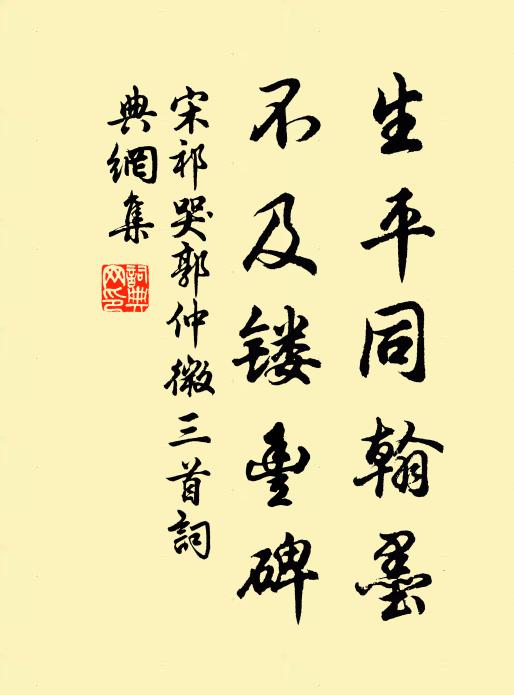 生平同翰墨
不及镂豊碑
宋祁哭郭仲微三首詞
典網集
詞典
网印